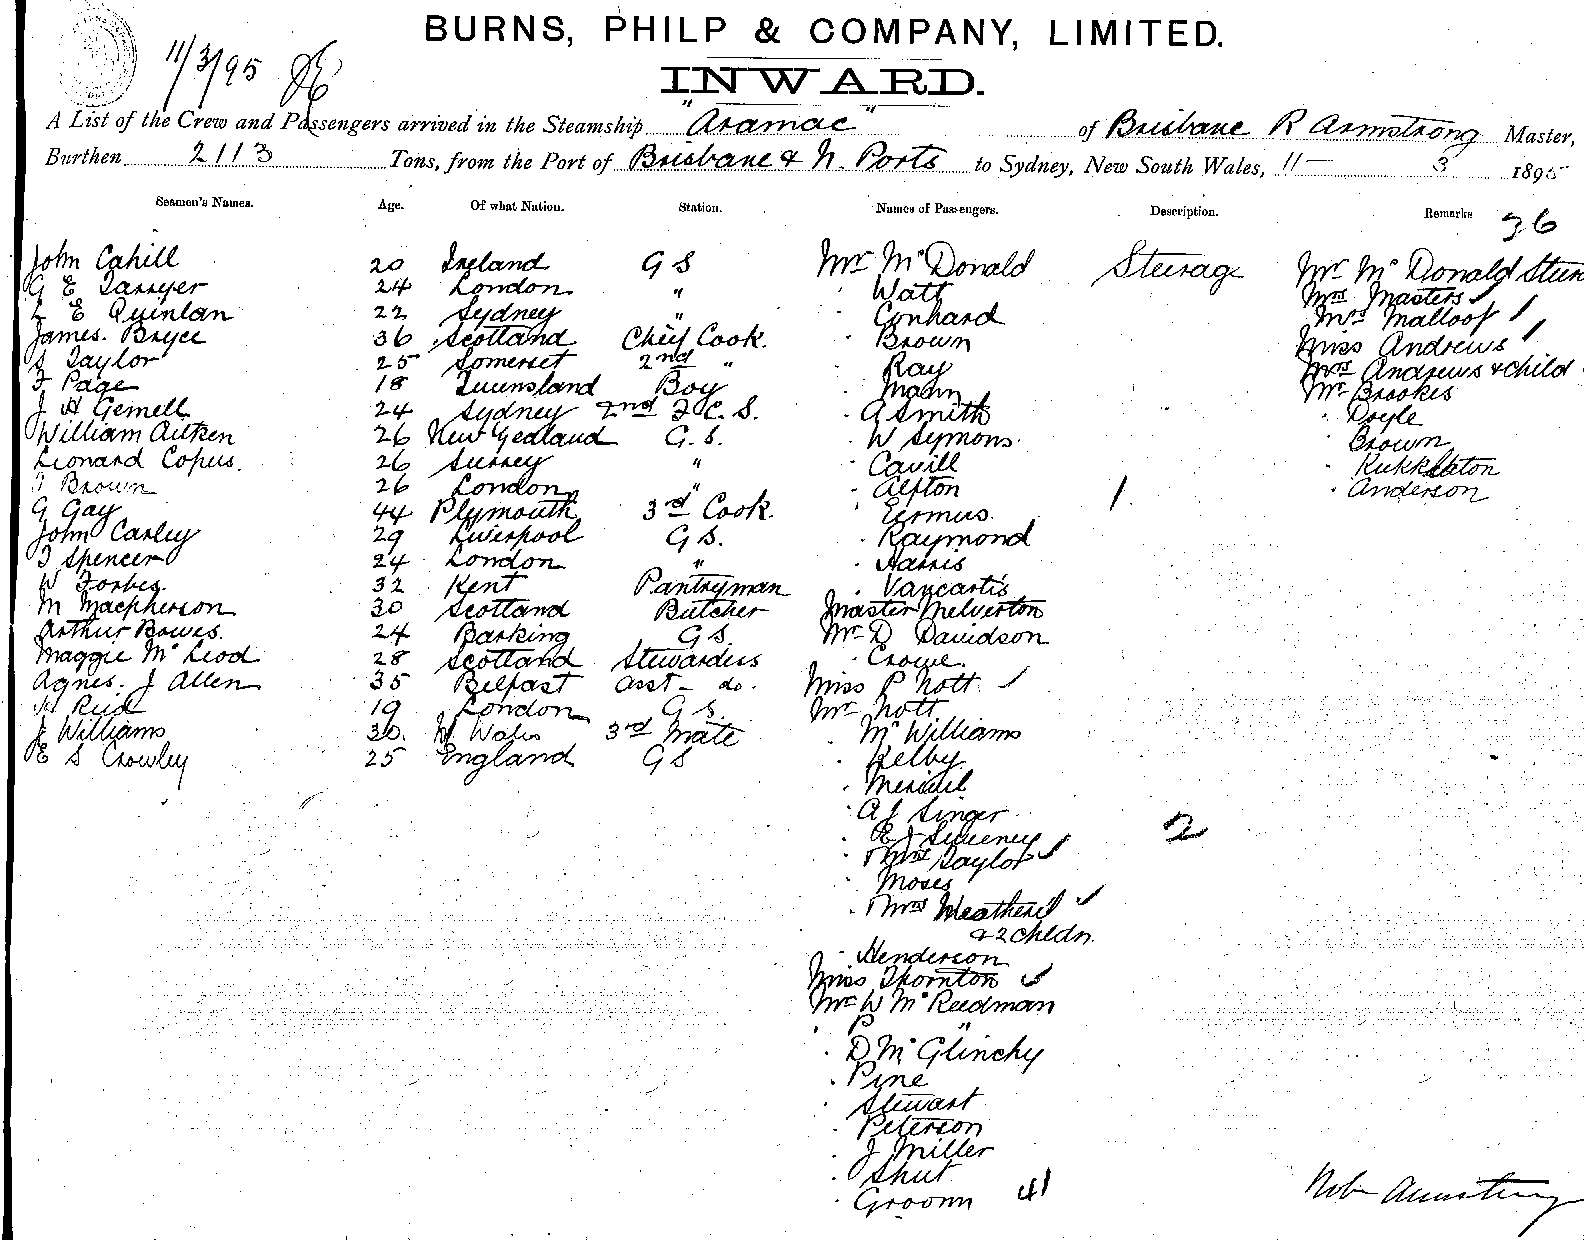 BURNS, PHILP & COMPANY, LIMITED.
INWARD.
11/3/95
A List of the Crew and Passengers arrived in the Steamship "Aramac" of Brisbane R Armstrong Master,
Burthen 2113 Tons, from the Port of Brisbane & N. Ports to Sydney, New South Wales, 11 - 3 1895
Seamen's Names. Age. Of what Nation. Station. Names of Passengers. Description. Remarks 36
John Cahill 20 Ireland G S Mr McDonald Steerage Mr McDonald Steer
G E 24 London " · Watt Mrs Masters
E Quinlan 22 Sydney " · Conhard Mrs Malloof
James. Bryce 36 Scotland Chief Cook. · Brown Miss Andrews
S Taylor 25 Somerset 2nd " · Ray Mrs Andrews & child
F Page 18 Queensland Boy · Mann Mr Brookes
J H Gemell 24 Sydney 2nd F.C.S. · A Smith · Doyle
William Aitken 26 New Zealand G.S. · W Symons · Brown
Leonard Copus. 26 Surrey " · Cavill
Brown 26 London " · Alfton 1. · Anderson
G Gay 44 Plymouth 3rd Cook · Eermus
John Carley 29 Liverpool G S. · Raymond
Spencer 24 London " · Harris
W Forbes. 32 Kent Pantryman · Vancartis
M Macpherson 30 Scotland Butcher Master Melverton
Arthur Bowes. 24 Barking G S. Mr D Davidson
Maggie McLeod 28 Scotland Stewardess · Crowe.
Agnes. J Allen 35 Belfast Asst - do. Miss P Nott
H Reid 19 London G S. Mr Nott
J Williams 30. N Wales 3rd Mate · McWilliams
E S Crowley 25 England G S · Kelby
· A J Singer
· E J Sweeney 2
· Mrs Taylor
· Moses
· Mrs Weatheril
& 2 Chldn.
· Henderson
Miss Thornton
Mr W McReedman
· P "
· D McGlinchy
· Pine
· Stewart
· Peterson
· J Miller
· Shut
· Groom 41
Robt Armstrong